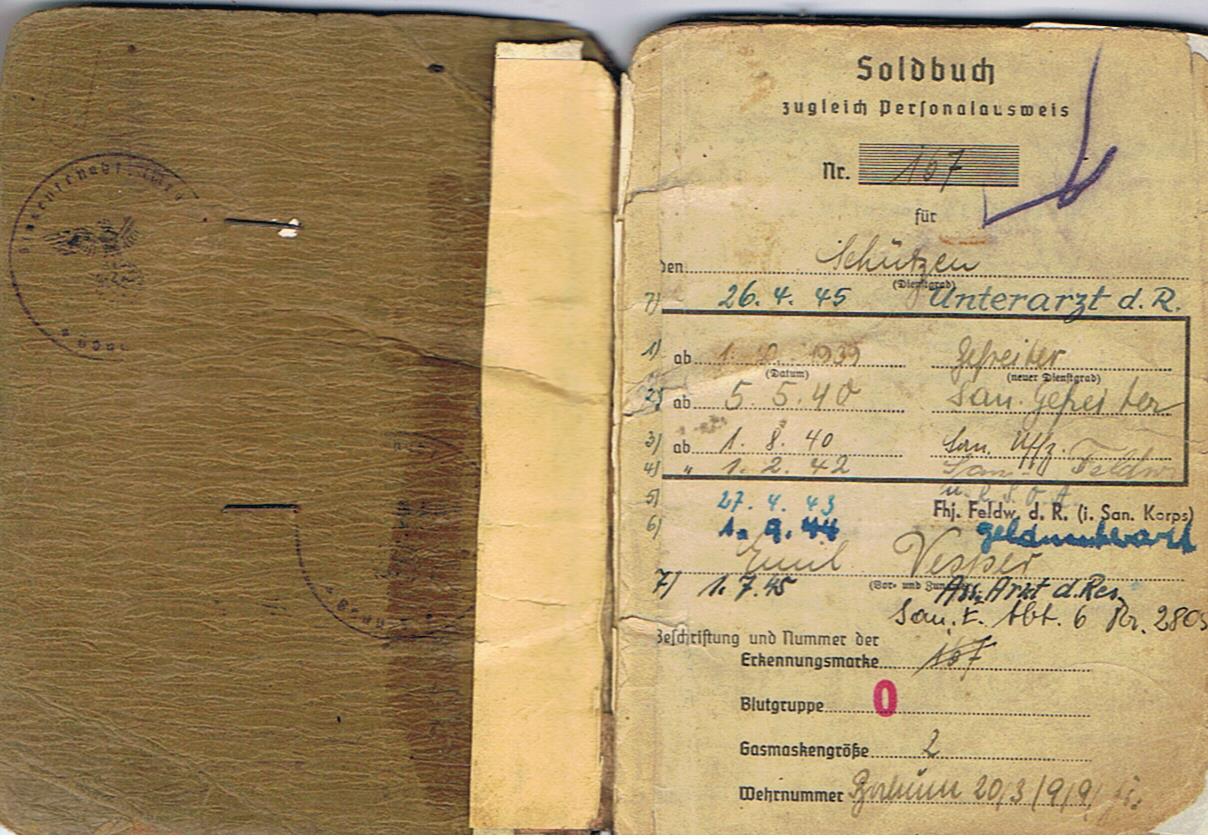 Soldbuch
zugleich Personalausweis
Nr. 167
für
den Schützen
(Dienstgrad)
7) 26. 4. 45 Unterarzt d. R.
1) ab 1. 1939 Gefreiter
(Datum) (neuer Dienstgrad)
2) ab 5. 5. 40 San. Gefreiter
3) ab 1. 8. 40 San. Uffz.
4) " 1. 2. 42 San. Feldw
5) 27. 4. 43 Fhj. Feldw. d. R. (i. San. Korps)
6) 1. 9. 44
Emil Vesper
7) 1. 7. 45 Ass. Arzt d. Res.
San. E. Abt. 6 Nr. 2805
Beschriftung und Nummer der
Erkennungsmarke 167
Blutgruppe 0
Gasmaskengröße 2
Wehrnummer 20/3/9/9/